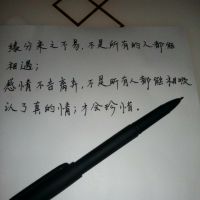 缘分来之不易，不是所有的人都能
相遇；
感情不言离弃，不是所有人都能相守
认了真的情；才会珍惜。